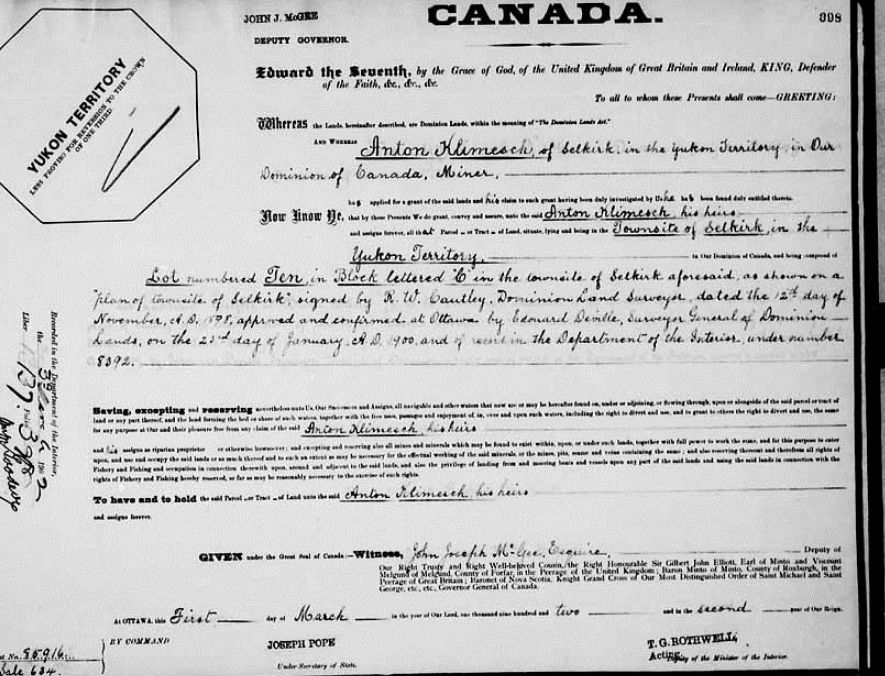 JOHN J. McGEE
DEPUTY GOVERNOR.
CANADA.
398
YUKON TERRITORY
LESS PROVISO FOR REVERSION TO THE CROWN
OF ONE THIRD
Edward the Seventh, by the Grace of God, of the United Kingdom of Great Britain and Ireland, KING, Defender
of the Faith, &c., &c., &c.
To all to whom these Presents shall come—GREETING:
Whereas the Lands, hereinafter described, are Dominion Lands, within the meaning of "The Dominion Lands Act."
AND WHEREAS Anton Klimesch, of Selkirk, in the Yukon Territory, in Our
Dominion of Canada, Miner,
has applied for a grant of the said lands and his claim to such grant having been duly investigated by Us he has been found duly entitled thereto.
Now Know Ye, that by these Presents We do grant, convey and assure, unto the said Anton Klimesch, his heirs
and assigns forever, all that Parcel or Tract of Land, situate, lying and being in the Townsite of Selkirk, in the
Yukon Territory, in Our Dominion of Canada, and being composed of
Lot numbered Ten, in Block lettered "C" in the townsite of Selkirk aforesaid, as shown on a
"plan of townsite of Selkirk", signed by R. W. Cautley, Dominion Land Surveyor, dated the 12th day of
November, A.D. 1898, approved and confirmed at Ottawa by Edouard Deville, Surveyor General of Dominion
Lands, on the day of January, A.D. 1900, and of record in the Department of the Interior, under number
8392.
Saving, excepting and reserving nevertheless unto Us, Our Successors and Assigns, all navigable and other waters that now are or may be hereafter found on, under or adjoining, or flowing through, upon or alongside of the said parcel or tract of
land or any part thereof, and the land forming the bed or shore of such waters, together with the free uses, passages and enjoyment of, in, over and upon such waters, including the right to divert and use, and to grant to others the right to divert and use, the same
for any purpose at Our and their pleasure free from any claim of the said Anton Klimesch, his heirs
and his assigns as riparian proprietor or otherwise however; and excepting and reserving also all mines and minerals which may be found to exist within, upon, or under such lands, together with full power to work the same, and for this purpose to enter
upon, and use and occupy the said lands or so much thereof and to such an extent as may be necessary for the effectual working of the said minerals, or the mines, pits, seams and veins containing the same; and also reserving thereout and therefrom all rights of
Fishery and Fishing and occupation in connection therewith upon, around and adjacent to the said lands, and also the privilege of landing from and mooring boats and vessels upon any part of the said lands and using the said lands in connection with the
rights of Fishery and Fishing hereby reserved, so far as may be reasonably necessary to the exercise of such rights.
To have and to hold the said Parcel or Tract of Land unto the said Anton Klimesch, his heirs
and assigns forever.
GIVEN under the Great Seal of Canada:—Witness, John Joseph McGee, Esquire, Deputy of
Our Right Trusty and Right Well-beloved Cousin, the Right Honourable Sir Gilbert John Elliott, Earl of Minto and Viscount
Melgund of Melgund, County of Forfar, in the Peerage of the United Kingdom; Baron Minto of Minto, County of Roxburgh, in the
Peerage of Great Britain; Baronet of Nova Scotia, Knight Grand Cross of Our Most Distinguished Order of Saint Michael and Saint
George, etc., etc., Governor General of Canada.
At OTTAWA, this First day of March in the year of Our Lord, one thousand nine hundred and two and in the second year of Our Reign.
BY COMMAND
JOSEPH POPE
Under-Secretary of State.
T. G. ROTHWELL,
Acting Deputy of the Minister of the Interior.
No. 85916
Sale 634.
Recorded in the Department of the Interior,
the March 190 2
Liber 137. Folio 398